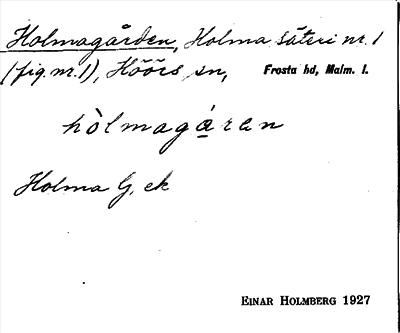 Holmagården, Holma säteri nr. 1
(fig. nr. 1), Höörs sn, Frosta hd, Malm. l.
hòlmagáran
Holma G, ek
EINAR HOLMBERG 1927